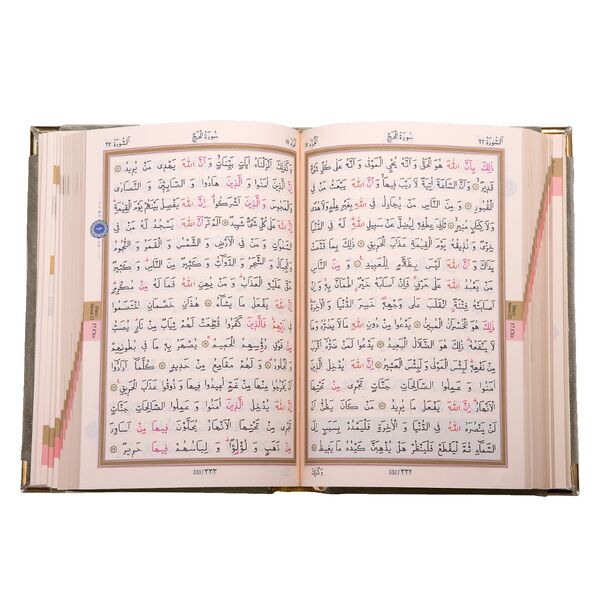 اَلسُّورَةُ ٢٢
سُورَةُ الْحَجِّ
ذٰلِكَ بِاَنَّ اللّٰهَ هُوَ الْحَقُّ وَاَنَّهُ يُحْيِ الْمَوْتٰى وَاَنَّهُ عَلٰى كُلِّ شَيْءٍ
قَدِيرٌ وَاَنَّ السَّاعَةَ اٰتِيَةٌ لَا رَيْبَ فِيهَا وَاَنَّ اللّٰهَ يَبْعَثُ مَنْ فِي
الْقُبُورِ وَمِنَ النَّاسِ مَنْ يُجَادِلُ فِي اللّٰهِ بِغَيْرِ عِلْمٍ وَلَا هُدًى
وَلَا كِتَابٍ مُنِيرٍ ثَانِيَ عِطْفِهِ لِيُضِلَّ عَنْ سَبِيلِ اللّٰهِ لَهُ فِي الدُّنْيَا
خِزْيٌ وَنُذِيقُهُ يَوْمَ الْقِيٰمَةِ عَذَابَ الْحَرِيقِ ذٰلِكَ بِمَا قَدَّمَتْ
يَدَاكَ وَاَنَّ اللّٰهَ لَيْسَ بِظَلَّامٍ لِلْعَبِيدِ وَمِنَ النَّاسِ مَنْ يَعْبُدُ
اللّٰهَ عَلٰى حَرْفٍ فَاِنْ اَصَابَهُ خَيْرٌ اطْمَاَنَّ بِهِ وَاِنْ
اَصَابَتْهُ فِتْنَةٌ انْقَلَبَ عَلٰى وَجْهِهِ خَسِرَ الدُّنْيَا وَالْاٰخِرَةَ
ذٰلِكَ هُوَ الْخُسْرَانُ الْمُبِينُ يَدْعُوا مِنْ دُونِ اللّٰهِ مَا لَا يَضُرُّهُ وَمَا
لَا يَنْفَعُهُ ذٰلِكَ هُوَ الضَّلَالُ الْبَعِيدُ يَدْعُوا لَمَنْ ضَرُّهُ اَقْرَبُ
مِنْ نَفْعِهِ لَبِئْسَ الْمَوْلٰى وَلَبِئْسَ الْعَشِيرُ اِنَّ اللّٰهَ يُدْخِلُ الَّذِينَ
اٰمَنُوا وَعَمِلُوا الصَّالِحَاتِ جَنَّاتٍ تَجْرِي مِنْ تَحْتِهَا
الْاَنْهَارُ اِنَّ اللّٰهَ يَفْعَلُ مَا يُرِيدُ مَنْ كَانَ يَظُنُّ اَنْ لَنْ
يَنْصُرَهُ اللّٰهُ فِي الدُّنْيَا وَالْاٰخِرَةِ فَلْيَمْدُدْ بِسَبَبٍ اِلَى
السَّمَاءِ ثُمَّ لْيَقْطَعْ فَلْيَنْظُرْ هَلْ يُذْهِبَنَّ كَيْدُهُ مَا يَغِيظُ
332/٣٣٢
وَكَذٰلِكَ
سُورَةُ الْحَجِّ
اَلسُّورَةُ ٢٢
وَكَذٰلِكَ اَنْزَلْنَاهُ اٰيَاتٍ بَيِّنَاتٍ وَاَنَّ اللّٰهَ يَهْدِي مَنْ يُرِيدُ
اِنَّ الَّذِينَ اٰمَنُوا وَالَّذِينَ هَادُوا وَالصَّابِئِينَ وَالنَّصَارٰى
وَالْمَجُوسَ وَالَّذِينَ اَشْرَكُوا اِنَّ اللّٰهَ يَفْصِلُ بَيْنَهُمْ يَوْمَ الْقِيٰمَةِ
اِنَّ اللّٰهَ عَلٰى كُلِّ شَيْءٍ شَهِيدٌ اَلَمْ تَرَ اَنَّ اللّٰهَ يَسْجُدُ لَهُ مَنْ فِي
السَّمٰوَاتِ وَمَنْ فِي الْاَرْضِ وَالشَّمْسُ وَالْقَمَرُ وَالنُّجُومُ
وَالْجِبَالُ وَالشَّجَرُ وَالدَّوَابُّ وَكَثِيرٌ مِنَ النَّاسِ وَكَثِيرٌ
حَقَّ عَلَيْهِ الْعَذَابُ وَمَنْ يُهِنِ اللّٰهُ فَمَا لَهُ مِنْ مُكْرِمٍ
اِنَّ اللّٰهَ يَفْعَلُ مَا يَشَاءُ هٰذَانِ خَصْمَانِ اخْتَصَمُوا
فِي رَبِّهِمْ فَالَّذِينَ كَفَرُوا قُطِّعَتْ لَهُمْ ثِيَابٌ مِنْ نَارٍ يُصَبُّ
مِنْ فَوْقِ رُؤُسِهِمُ الْحَمِيمُ يُصْهَرُ بِهِ مَا فِي بُطُونِهِمْ
وَالْجُلُودُ وَلَهُمْ مَقَامِعُ مِنْ حَدِيدٍ كُلَّمَا اَرَادُوا
اَنْ يَخْرُجُوا مِنْهَا مِنْ غَمٍّ اُعِيدُوا فِيهَا وَذُوقُوا عَذَابَ الْحَرِيقِ
اِنَّ اللّٰهَ يُدْخِلُ الَّذِينَ اٰمَنُوا وَعَمِلُوا الصَّالِحَاتِ جَنَّاتٍ
تَجْرِي مِنْ تَحْتِهَا الْاَنْهَارُ يُحَلَّوْنَ فِيهَا مِنْ اَسَاوِرَ
مِنْ ذَهَبٍ وَلُؤْلُؤًا وَلِبَاسُهُمْ فِيهَا حَرِيرٌ
333/٣٣٣